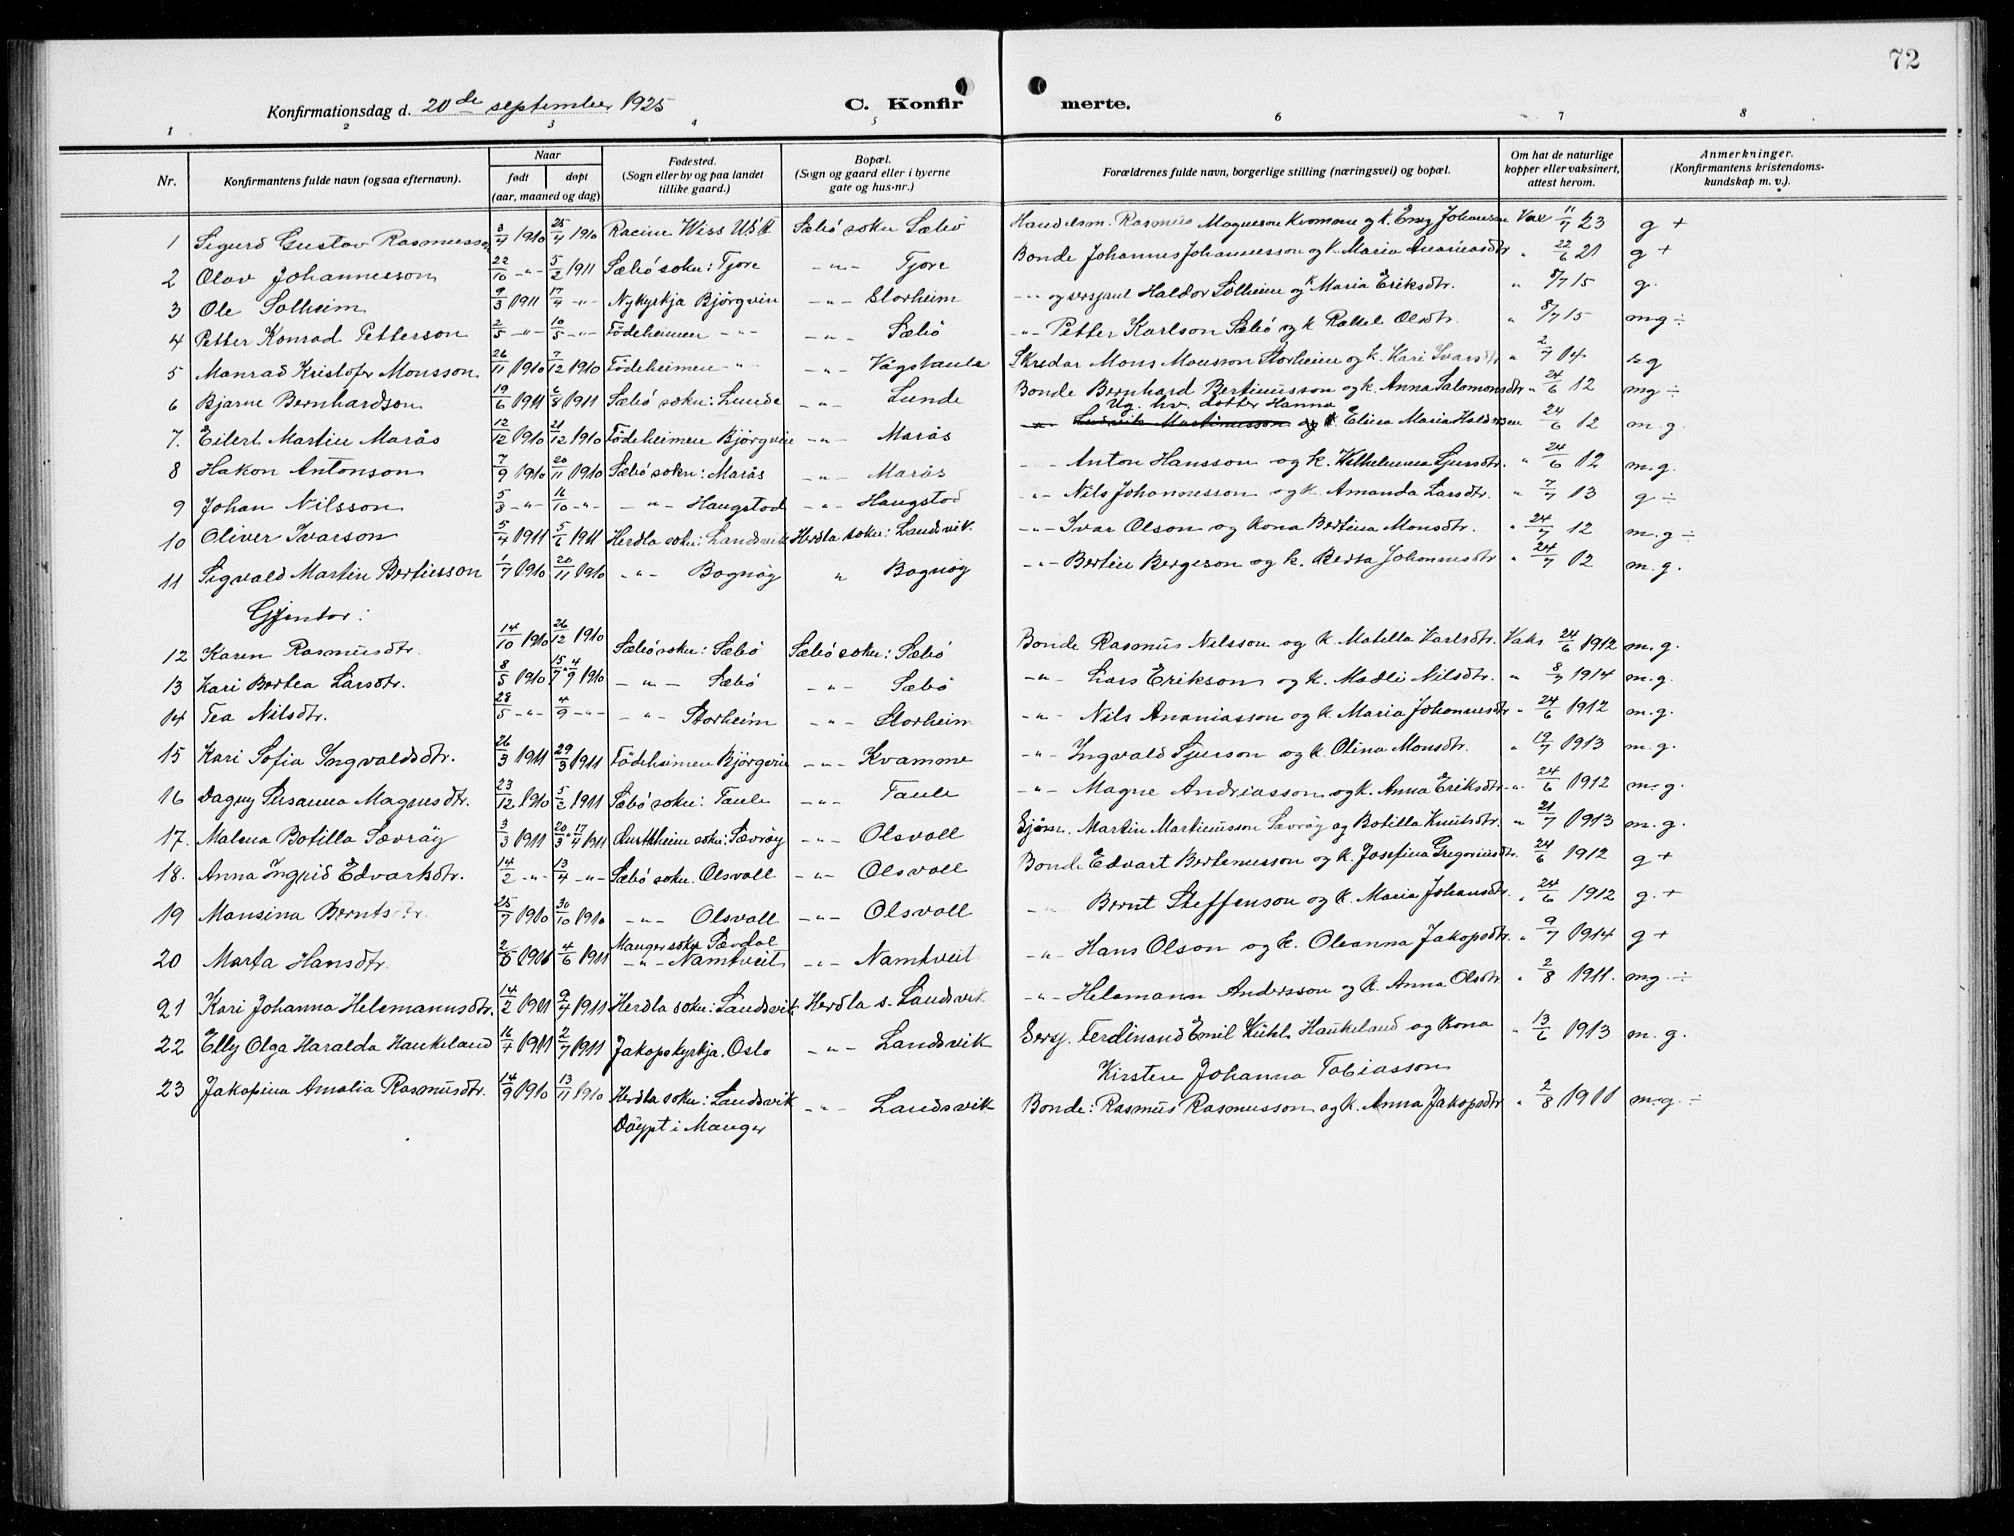 72
Konfirmationsdag d. 20de september 1925 C. Konfir merte.
1 2 3 4 5 6 7 8
Nr. Konfirmantens fulde navn (ogsaa efternavn). Naar født døpt (aar, maaned og dag) Fødested. (Sogn eller by og paa landet tillike gaard.) Bopæl. (Sogn og gaard eller i byerne gate og hus-nr.) Forældrenes fulde navn, borgerlige stilling (næringsvei) og bopæl. Om hat de naturlige kopper eller vaksinert, attest herom. Anmerkninger. (Konfirmantens kristendoms-kundskap m. v.).
1 Sigurd Gustav Rasmusson 3/4 1910 25/4 1910 Racine Wiss USA Sæbö sokn Sæbö Handelsm. Rasmus Magneson Kvamme og k. Emy Johanson Vax 11/7 23 g +
2 Olav Johannesson 22/10 -"- 5/2 1911 Sæbö sokn: Tjore -"- Tjore Bonde Johannes Johannesson og k. Maria Ananiasdtr " 22/6 21 g +
3 Ole Solheim 9/3 1911 17/4 -"- Nykyrkja Björgvin -"- Storheim -"- og sersjant Haldor Solheim og k Maria Eriksdtr. " 8/7 15 g.
4 Petter Konrad Petterson 2/5 -"- 10/5 -"- Födeheimen -"- -"- Sæbö -"- Petter Karlson Sæbö og k Rakel Olsdtr. " 8/7 15 mg ÷
5 Monrad Kristofer Monsson 26/11 1910 7/12 1910 Födeheimen -"- -"- Vågshaula Skredar Mons Monsson Storheim og k. Kari Ivarsdtr " 2/7 04 g
6 Bjarne Bernhardson 19/6 1911 6/8 1911 Sæbö sokn: Lunde -"- Lunde Bonde Bernhard Bertinusson og k. Anna Salomonsdtr " 24/6 12 mg ÷
Ug. hv. dotter Hanna
7. Eilert Martin Marås 12/12 1910 21/12 1910 Födeheimen Björgvin -"- Marås -"- Ludvik Martinusson og k Elina Maria Haldorsen 24/6 12 m. g.
8 Hakon Antonson 7/9 1910 20/11 1910 Sæbö sokn: Marås -"- Marås -"- Anton Hansson og k. Vilhelmina Sjursdtr. " 24/6 12 m. g.
9 Johan Nilsson 5/8 -"- 16/10 -"- -"- Haugstad -"- Haugstad -"- Nils Johannesson og k. Amanda Larsdtr. " 7/7 13 g ÷
10 Oliver Ivarson 5/4 1911 5/6 1911 Herdla sokn: Landsvik Herdla sokn: Landsvik -"- Ivar Olson og kona Bertina Monsdtr. " 24/7 12 m. g ÷
11 Sigvald Martin Bertinsson 1/7 1910 20/11 1910 -"- Bognöy " Bognöy -"- Bertin Bergeson og k. Berta Johannesdtr " 24/7 12 m. g.
Gjentor:
12 Karen Rasmusdtr. 14/10 1910 26/12 1910 Sæbö sokn: Sæbö Sæbö sokn: Sæbö Bonde Rasmus Nilsson og k Matilla Karlsdtr. Vaks 24/6 1912 m. g.
13 Kari Bertea Larsdtr. 8/5 1910 15/7 " 4/9 1910 -"- Sæbö -"- Sæbö -"- Lars Erikson og k. Madli Nilsdtr. " 8/7 1914 m. g.
14 Tea Nilsdtr. 28/5 -"- 4/9 -"- -"- Storheim -"- Storheim -"- Nils Ananiasson og k. Maria Johannesdtr " 24/6 1912 m. g.
15 Kari Sofia Ingvaldsdtr. 26/3 1911 29/3 1911 Födeheimen Björgvin -"- Kvamme -"- Ingvald Sjurson og k. Olina Monsdtr. " 19/7 1913 m. g.
16 Dagny Susanna Magnusdtr. 23/12 1910 5/2 1911 Sæbö sokn: Taule -"- Taule -"- Magne Andriasson og k. Anna Eriksdtr. " 24/6 1912 m. g.
17. Malena Botilla Sævröy 3/3 1911 20/3 " 17/4 1911 Austrheim sokn: Sævröy -"- Olsvoll Sjöm. Martin Martinusson Sævröy og Botilla Knutsdtr. " 21/7 1913 m. g.
18. Anna Ingrid Edvartsdtr. 14/2 -"- 13/4 -"- Sæbö sokn. Olsvoll -"- Olsvoll Bonde Edvart Bertinusson og k. Josefina Gregoriusdtr. 24/6 1912 g +
19 Monsina Berntsdtr. 25/7 1910 30/10 1910 -"- Olsvoll -"- Olsvoll -"- Bernt Steffenson og k. Maria Johansdtr. " 24/6 1912 g. +
20 Marta Hansdtr. 4/6 1911 Manger sokn Sævdal -"- Namtveit -"- Namtveit -"- Hans Olson og k. Oleanna Jakopsdtr. " 9/7 1914 g +
21 Kari Johanna Helemannsdtr. 14/2 1911 9/4 1911 Herdla sokn: Landsvik Herdla s. Landsvik -"- Helemann Andersson og k. Anna Olsdtr " 2/8 1911. mg. ÷
22 Elly Olga Haralda Haukeland 16/4 1911 2/7 1911 Jakopskyrkja. Oslo -"- Landsvik Sersj. Ferdinand Emil Kühl Haukeland og Kona " 13/6 1913 m. g.
Kirsten Johanna Tobiasson
23 Jakopina Amalia Rasmusdtr. 14/9 1910 13/11 1910 Herdla sokn: Landsvik -"- Landsvik Bonde: Rasmus Rasmusson og k. Anna Jakopsdtr " 2/8 1911 m. g. ÷
Döypt i Manger